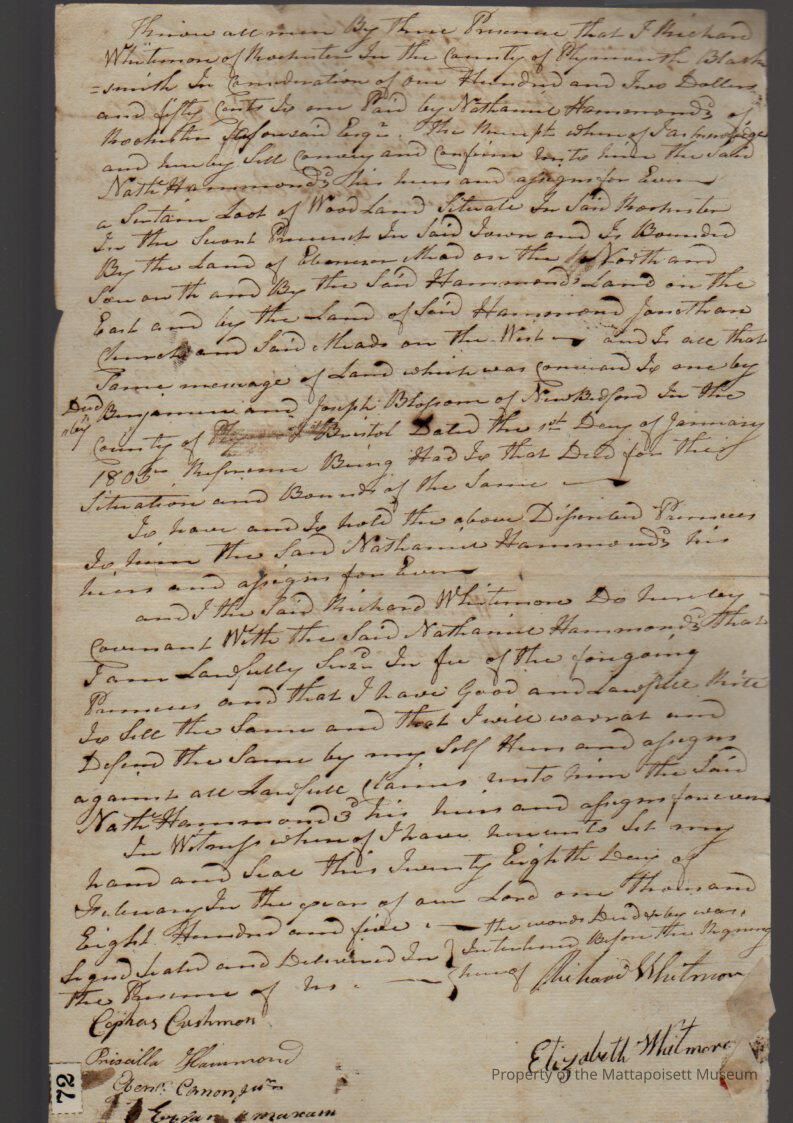 Know all men By these Presence that I Richard
Whitmon of Rochester In the County of Plymouth Black
=smith In Consideration of one Hundred and Two Dollers
and fifty Cents To me Paid by Nathaniel Hammond 3d of
Rochester Esqr. The where of I acknowledge
and hereby Sell Convey and Confirm unto him the Said
Nathl Hammond 3d his heirs and assigns for Ever
a Sertain Loot of Wood Land Situate In Said Rochester
In the Second Precinct In Said Town and Is Bounded
By the Land of Ebenezer Mead on the North and
Sou outh and By the Said Hammonds Land on the
East and by the Land of Said Hammond Jonathan
Church and Said Meads on the West and Is all that
Same of Land which was Convaid To me by
Deed
Benjamin and Joseph Blossom of New Bedford In the
County of Bristol Dated the 1st Day of January
180 Reference Being Had To that Deed for the
Situation and Bounds of the Same
To have and To hold the above Discribed Premices
To him the Said Nathaniel Hammond 3d his
heirs and assigns for Ever
and I the Said Richard Whitmore Do hereby
Covenant With the Said Nathaniel Hammond 3d that
I am Lawfully In fee of the forgoing
Premices and that I have Good and Lawfull Rite
To Sell the Same and that I will warrat and
Defend the Same by my Self Heirs and assigns
against all Lawfull Claims unto him the Said
Nathl Hammond 3d his heirs and assigns forever
In Witness whereof I have hereunto Set my
hand and Seal this Twenty Eighth Day of
February In the year of our Lord one thousand
Eight Hundred and five the words Deed by was
Signd Seald and Delivered In Interlined Before the Signing
the Presence of us hereof Richard Whitmon
Cephas Cushmon
Elizabeth Whitmore
Priscilla Hammond
Property of the Mattapoisett Museum
72